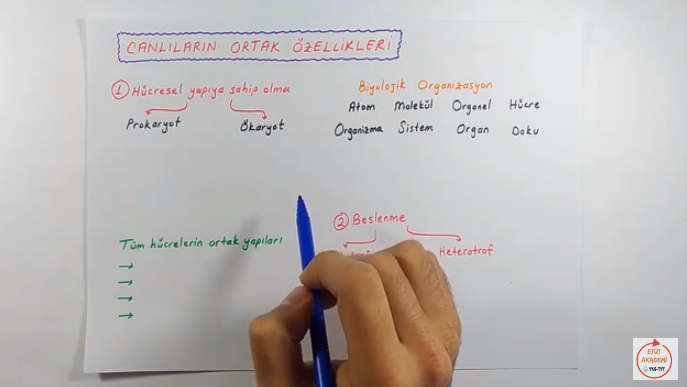 CANLILARIN ORTAK ÖZELLİKLERİ
① Hücresel yapıya sahip olma
Prokaryot Ökaryot
Biyolojik Organizasyon
Atom Molekül Organel Hücre
Organizma Sistem Organ Doku
Tüm hücrelerin ortak yapıları
→
→
→
→
② Beslenme
Heterotrof
ETÜT
AKADEMİ
YKS-TYT